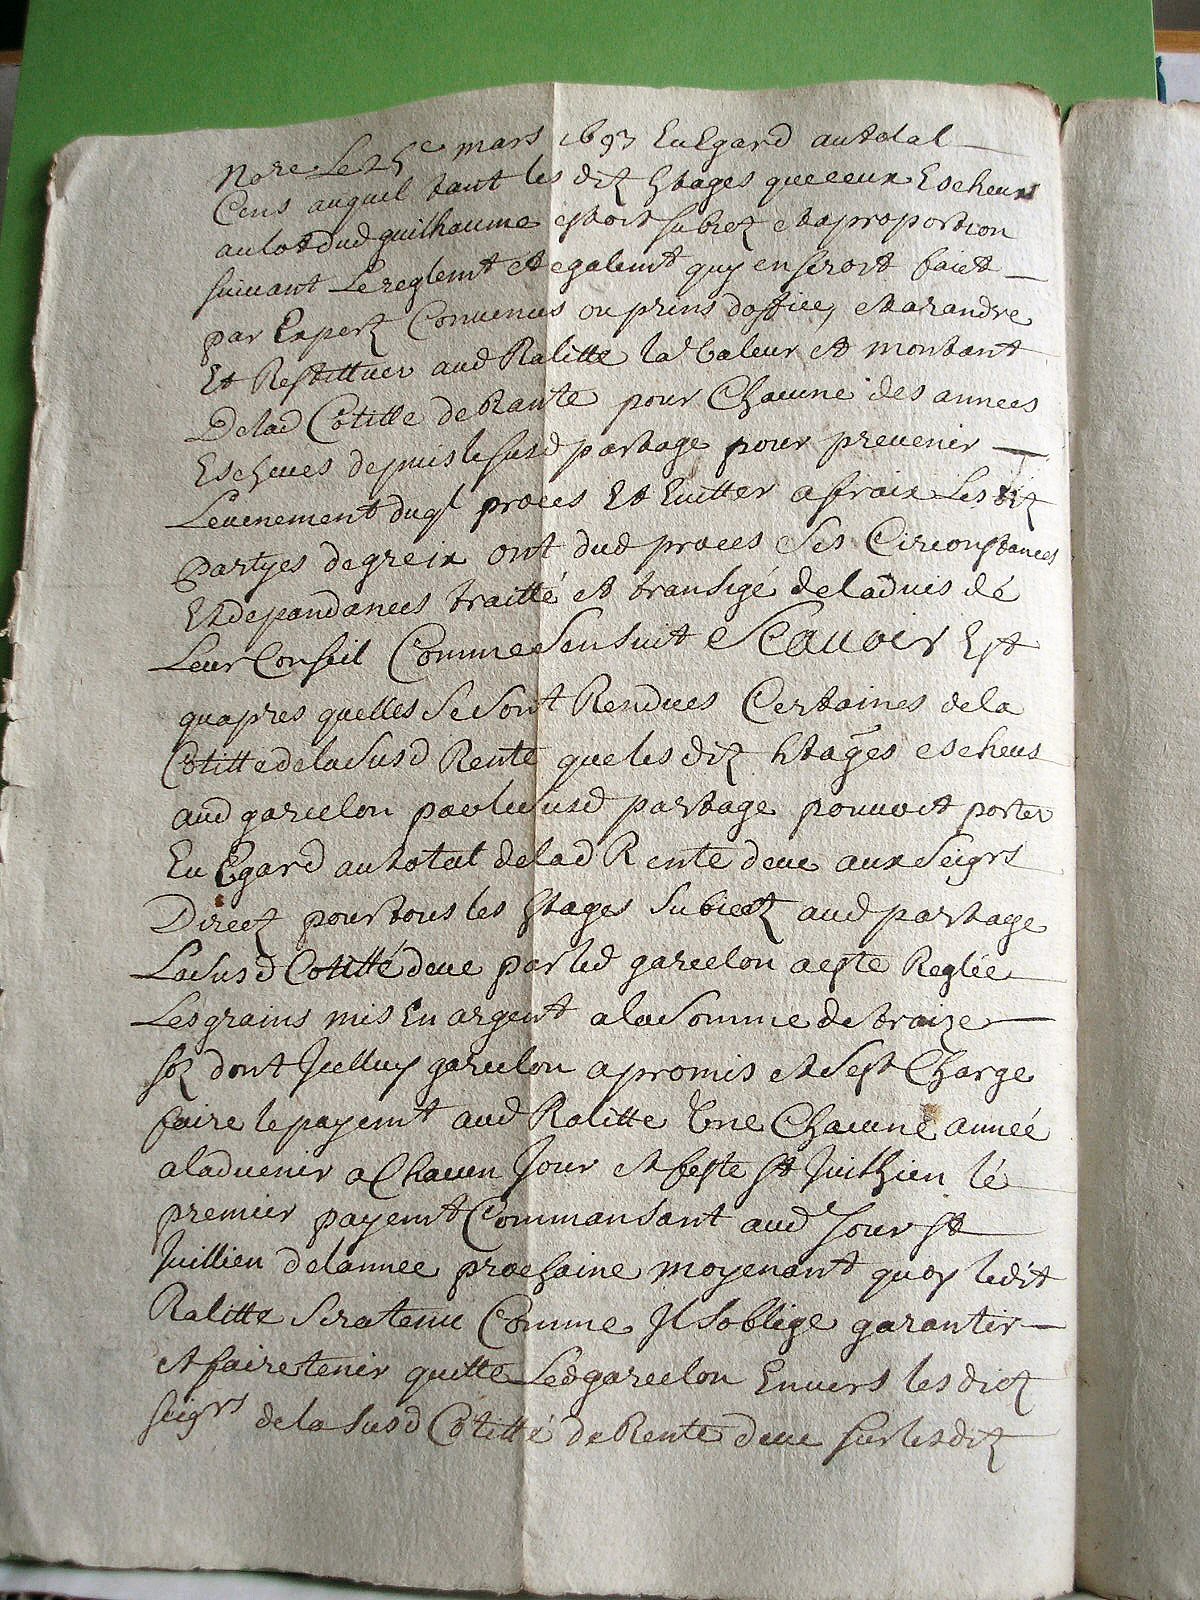 nore le 25e mars 1693 Eu Egard au total
Cens auquel tant les ditz htages que ceux Escheus
au lot dud guilhaume estoit subiet et a proportion
suiuant Le reglemt et egalemt quy en seroit faict
par Expertz Conuenus ou prins doffice, et a randre
Et Restittuer aud Ralitte la Valeur et montant
De lad Cotitte de Rante pour Chacune des annees
Escheues depuis le susd partage pour preuenir
Leuenement duql proces Et Euitter a fraix Les ditz
partyes de gre in ont dud proces Ses Circonstances
Et depandances traitté et transigé de laduis dé
Leur Conseil Comme Sensuit Scauoir Est
quapres quelles Se Sont Rendues Certaines de la
Cotitte de la Susd Rente que les ditz htages escheus
aud garcelon par le susd partage pouuoit porter
Eu Egard au total de lad Rente deue aux Seigrs
Directz pour tous les htages Subiectz aud partage
La Susd Cotitté deue par led garcelon a este Reglée
Les grains mis En argent a la Somme de traize
solz dont Jcelluy garcelon a promis et Sest Charge
faire le payemt aud Ralitte Vne Chacune année
aladuenir a Chacun Jour et feste st Juilhien lé
premier payemt Commansant aud Jour st
Juillien de lannee prochaine moyenant quoy ledit
Ralitte Sera tenu Comme Jl Soblige garantir
et faire tenir quitte Led garcelon Enuers les dictz
seigrs de la Susd Cotitté de Rente deue sur les ditz